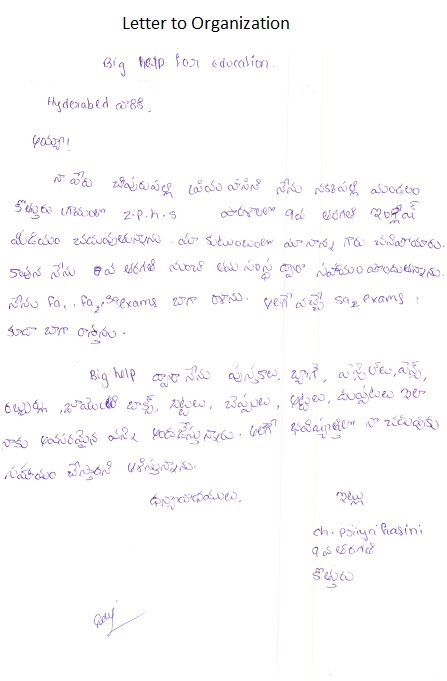 Letter to Organization
Big help for education.
Hyderabed వారికి,
అయ్యా!
నా పేరు చీపురుపల్లి ప్రియహాసిని నేను నక్కపల్లి మండలం
కొత్తూరు గ్రామంలో Z.P.H.S పాఠశాలలో 9వ తరగతి ఇంగ్లీష్
మీడియం చదువుతున్నాను. మా కుటుంబంలో మా నాన్న గారు చనిపోయారు.
కావున నేను 8వ తరగతి నుంచి ఈ సంస్థ ద్వారా సహాయం పొందుతున్నాను.
నేను Fa1, Fa2, exams బాగా రాశాను. అలాగే వచ్చే Sa2 exams
కూడా బాగా రాస్తాను.
Big help ద్వారా నేను పుస్తకాలు, బ్యాగ్, పెన్సిల్‌లు, పెన్స్,
రబ్బురు, జామెంట్రీ బాక్స్, బట్టలు, చెప్పులు, అట్టలు, దుప్పటలు ఇలా
నాకు అవసరమైన వన్ని అందజేస్తున్నారు. అలాగే భవిష్యత్తులో నా చదువుకు
సహాయం చేస్తారని ఆశిస్తున్నాను.
ధన్యవాదములు,
ఇట్లు
ch. Priya hasini
9వ తరగతి
కొత్తూరు